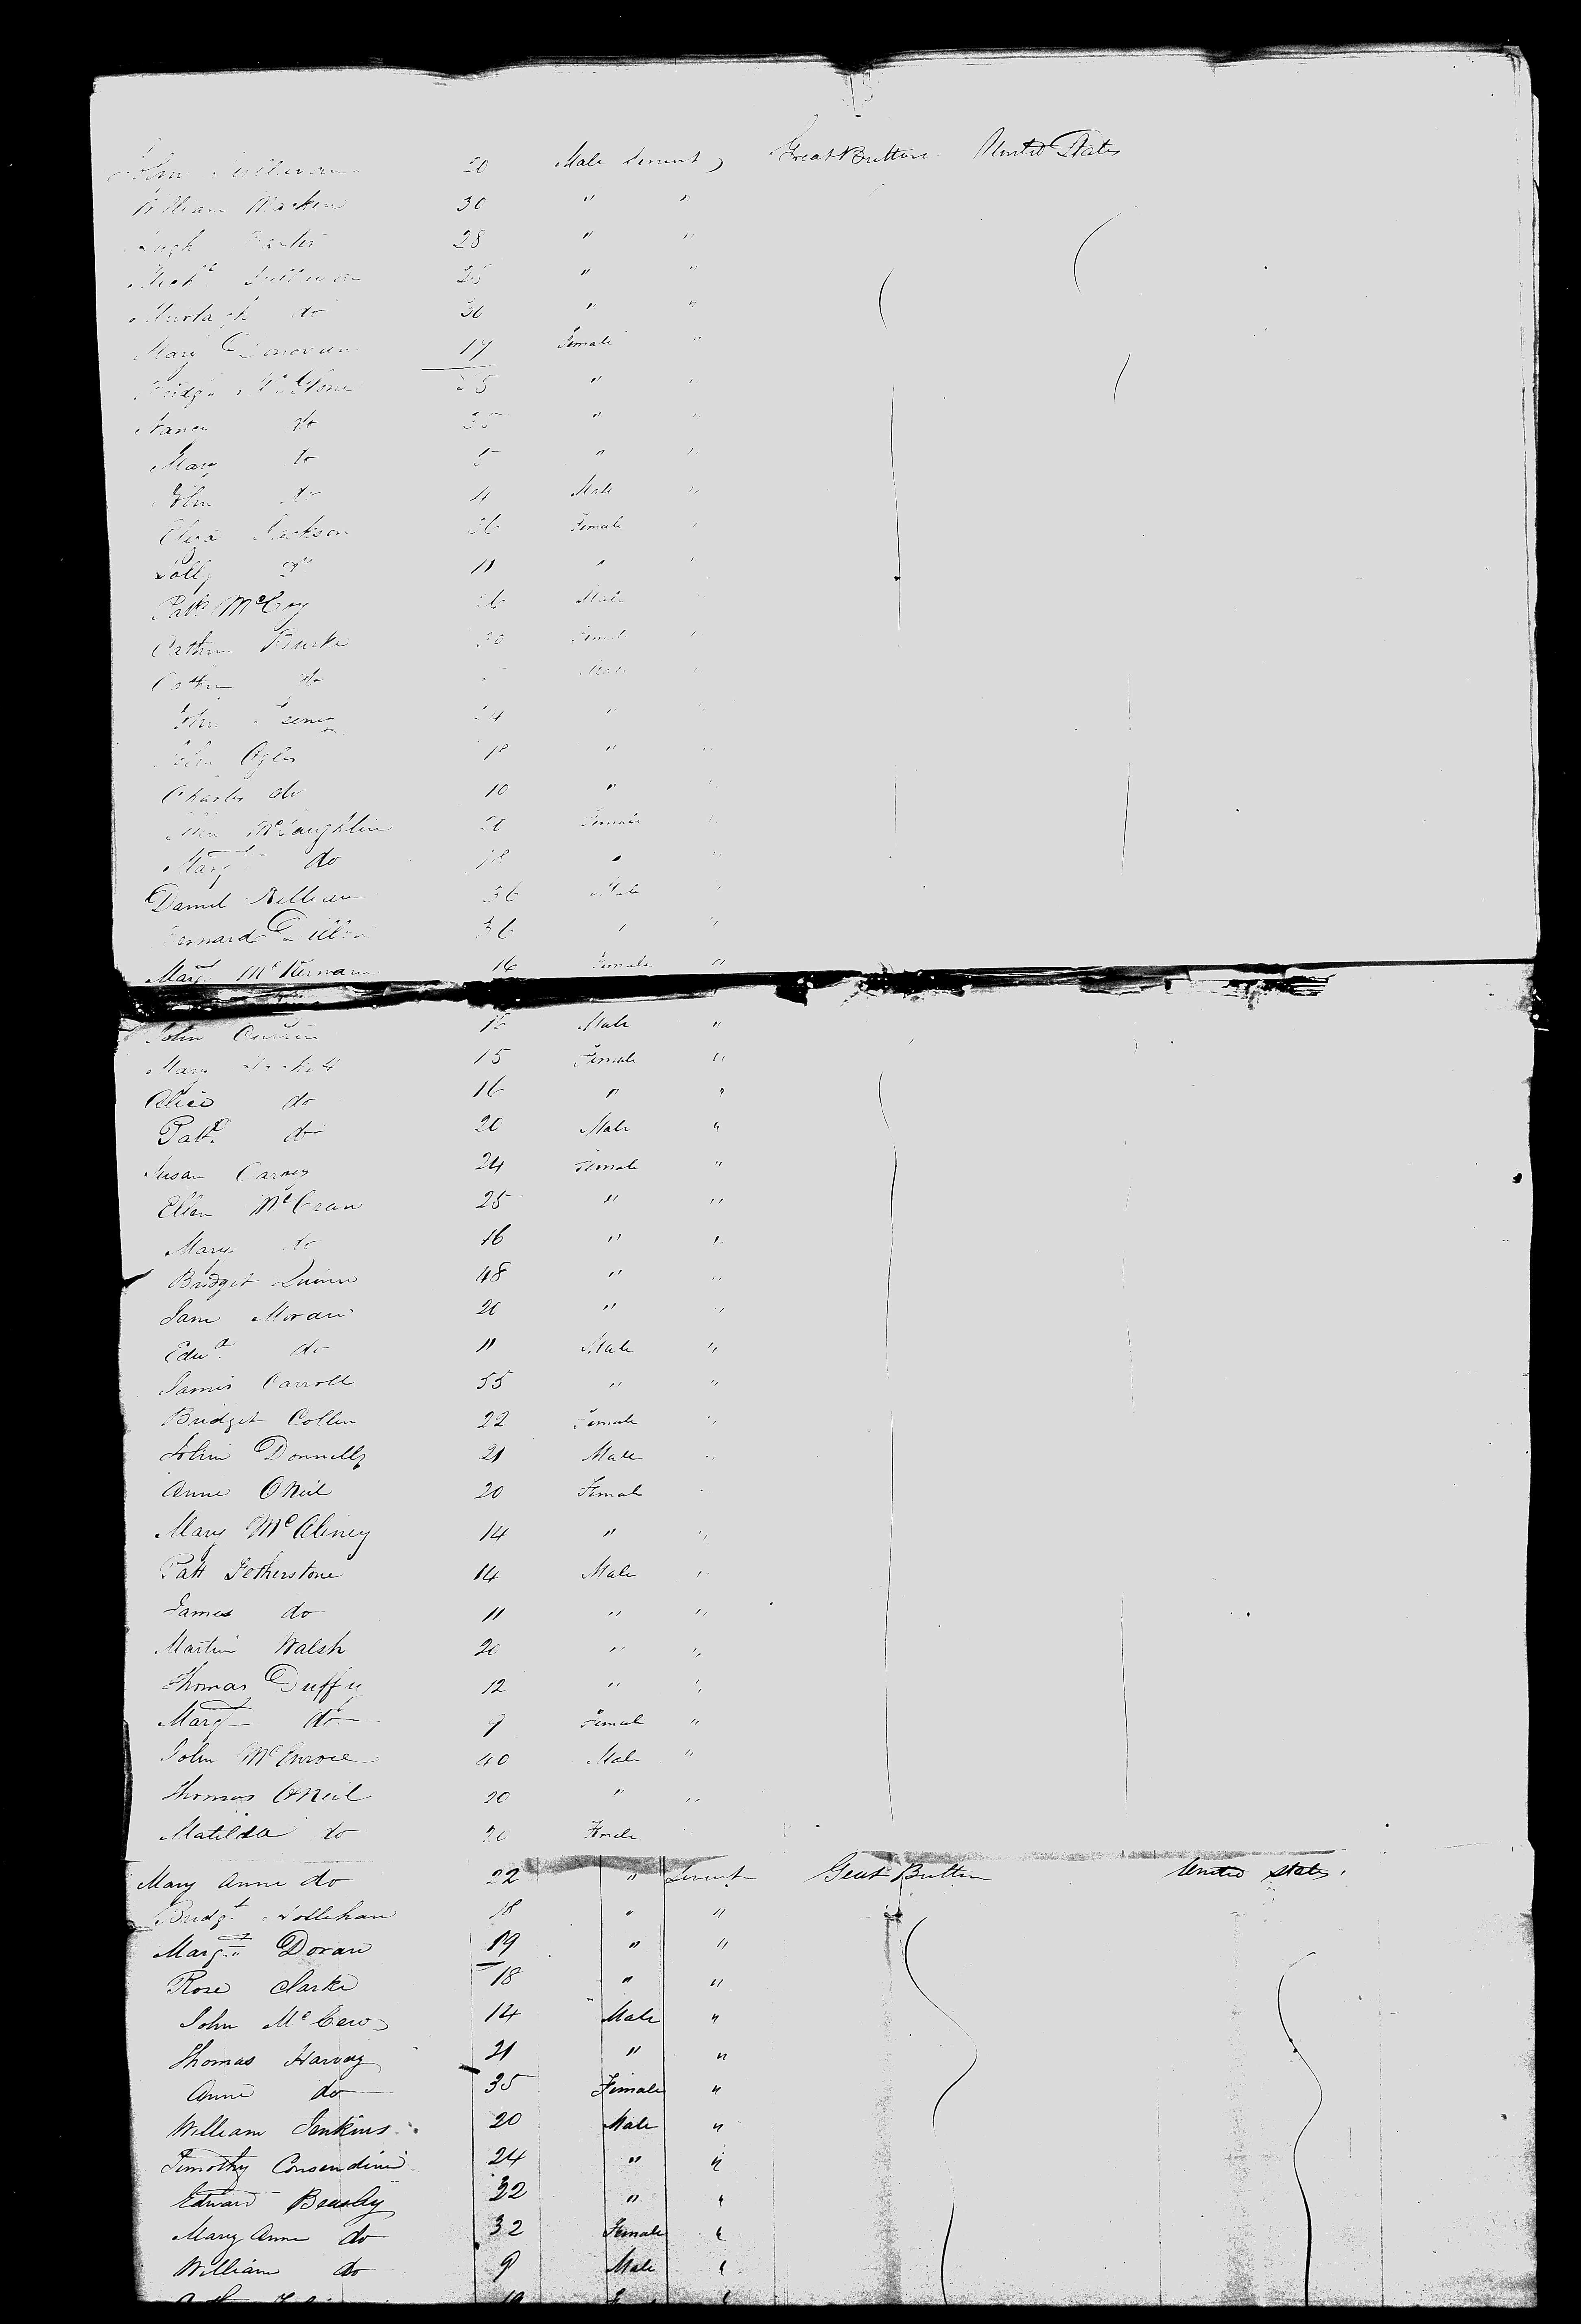 John Sullivan 20 Male Servant Great Brittain United States
William Macken 30 " "
Hugh 28 " "
Mich.l Sullivan 25 " "
Murtagh do 30 " "
Mary Donovan 17 Female "
Bridg.t 25 " "
Nancy do 35 " "
Mary do 5 " "
John do 4 Male "
Eliza Jackson 26 Female "
do 11 " "
Patk McCoy 26 Male "
Cathrn Burke 30 Female "
Cathn do Male "
John 24 " "
John Ogles 18 " "
Charles do 10 " "
McLaughlin 20 Female "
Margt do 18 " "
Daniel 36 Male "
Bernard 36 " "
Margt McKernan 16 Female "
John Curren 16 Male "
Mary 15 Female "
Alice do 16 " "
Patk do 20 Male "
Susan Carney 24 Female "
Ellen McCran 25 " "
Mary do 16 " "
Bridget Quinn 48 " "
Jane Moran 20 " "
Edwd do 11 Male "
James Carroll 55 " "
Bridget Collen 22 Female "
John Donnelly 21 Male "
Anne ONeil 20 Female "
Mary McAliney 14 " "
Patt Fetherstone 14 Male "
James do 11 " "
Martin Walsh 20 " "
Thomas Duffy 12 " "
Margt do 9 Female "
John McEnroe 40 Male "
Thomas ONeil 20 " "
Matilda do 20 Female
Mary Anne do 22 " Servant Great Brittain United States
Bridgt 18 " "
Margt Doran 19 " "
Rose Clarke 18 " "
John 14 Male "
Thomas Harvey 21 " "
Anne do 35 Female "
William Jenkins 20 Male "
Timothy Consendine 24 " "
Edward Beasley 32 " "
Mary Anne do 32 Female "
William do 9 Male "